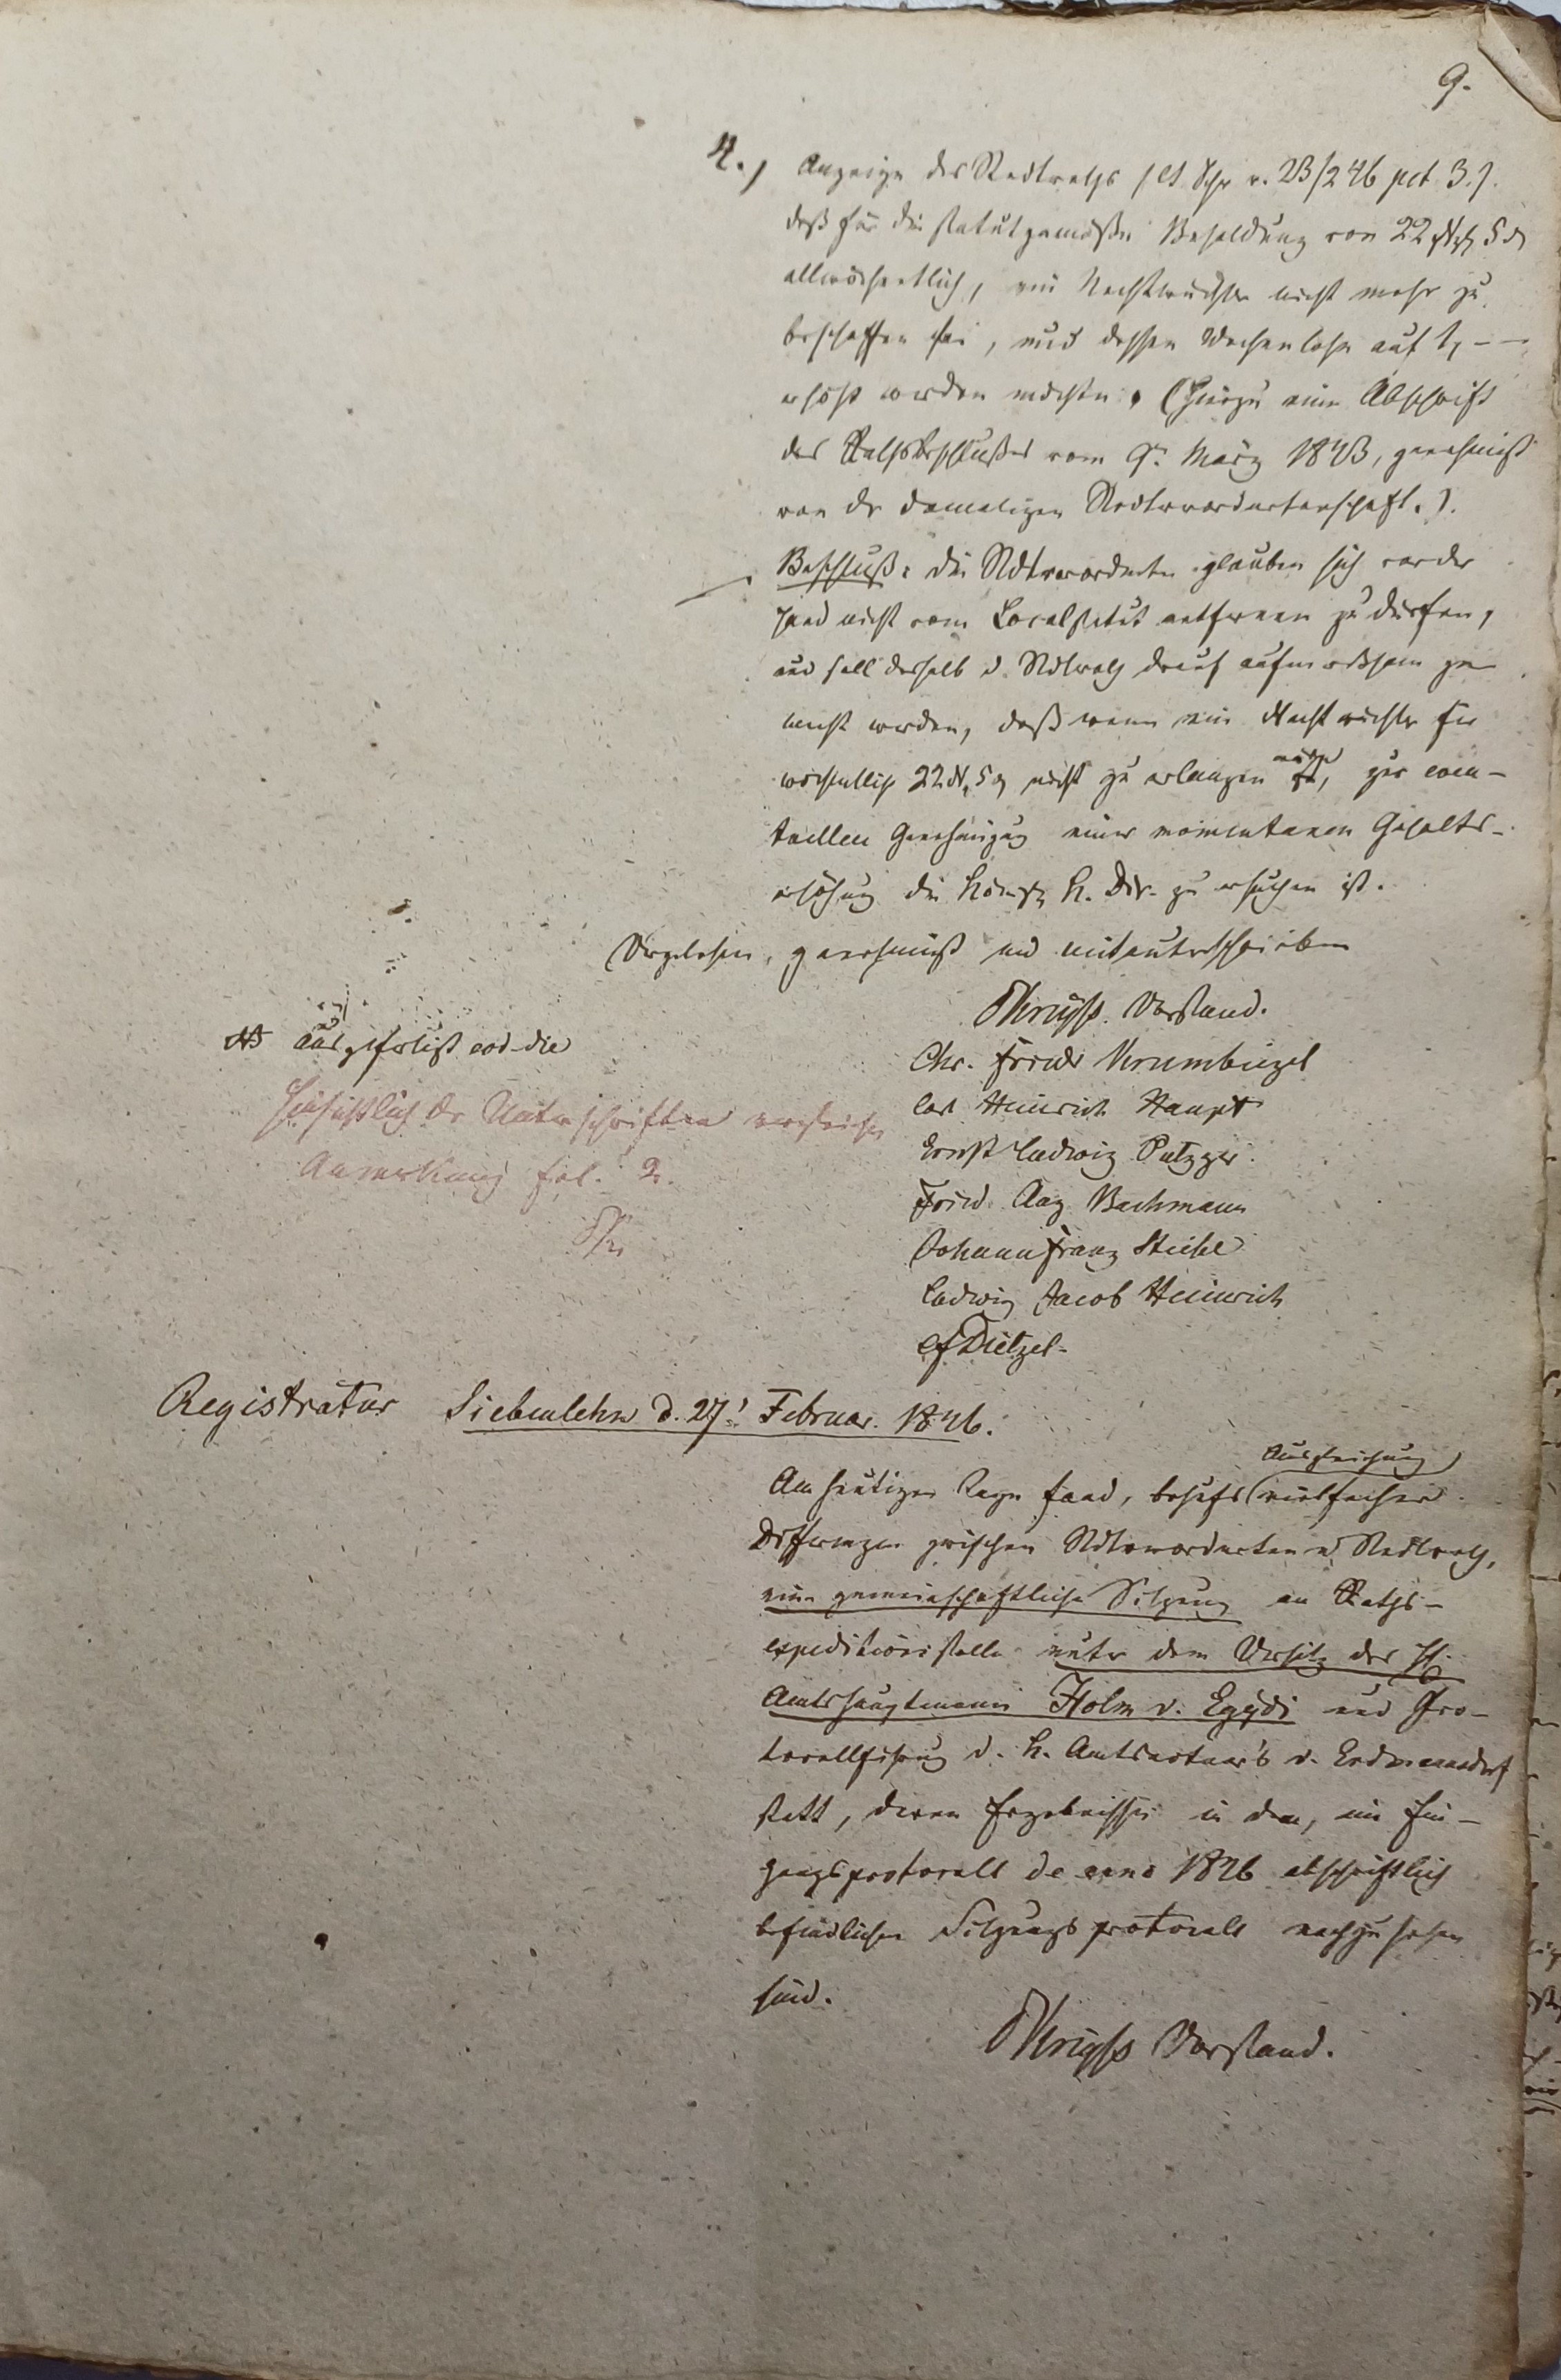 9.
4.) Anzeige des Stadtraths (lt. Schr. v. 23/2 46 pct. 3.).
daß für die statutgemäße Besoldung von 22 Ngr. 5 d
allwöchentlich, ein Nachtwächter nicht mehr zu
beschaffen sei, und dessen Wochenlohn auf 1, – –
erhöht werden möchte. (Hierzu eine Abschrift
des Rathsbeschlußes vom 9n. März 1843, genehmigt
von der damaligen Stadtverordnetenschaft.).
Beschluß: die Stdtverordneten glauben sich vorder
hand nicht vom Localstatut entfernen zu dürfen,
und soll deshalb d. Stdtrath drauf aufmerksam ge
macht werden, daß wenn ein Nachtwächter für
wöchentlich 22 N. 5 d nicht zu erlangen möge, zur even-
tuellen Genehmigung einer momentanen Gehalts-
erhöhung die Königl. K. Dir. zu ersuchen ist.
Vorgelesen, genehmigt und mitunterschrieben
Vorstand.
Chr. Friedr Krumbiegel
Carl Heinrich Haupt
Ernst Ludwig Putzger.
Fried. Aug. Bachmann
Johann Franz Stiehl
Ludwig Jacob Heinrich
Dietzel.
NB ausgefertigt eod. die
Hinsichtlich der Unterschriften vergleiche
Anmerkung fol. 2.
Registratur Siebenlehn d. 27! Februar. 1846.
Am heutigen Tage fand, behufs Ausgleichung vielfacher
Differenzen zwischen Stdtverordneten u Stadtrath,
eine gemeinschaftliche Sitzung an Raths-
expeditionsstelle unter dem Vorsitz des H.
Amtshauptmann Holm v. Egydi und Pro-
tocollführung d. H. Amtsactuar's v. Erdmannsdorf
statt, deren Ergebnisse in dem, im Ein-
gangsprotocoll de anno 1846 abschriftlich
befindlichen Sitzungsprotocoll nachzusehen
sind.
Vorstand.